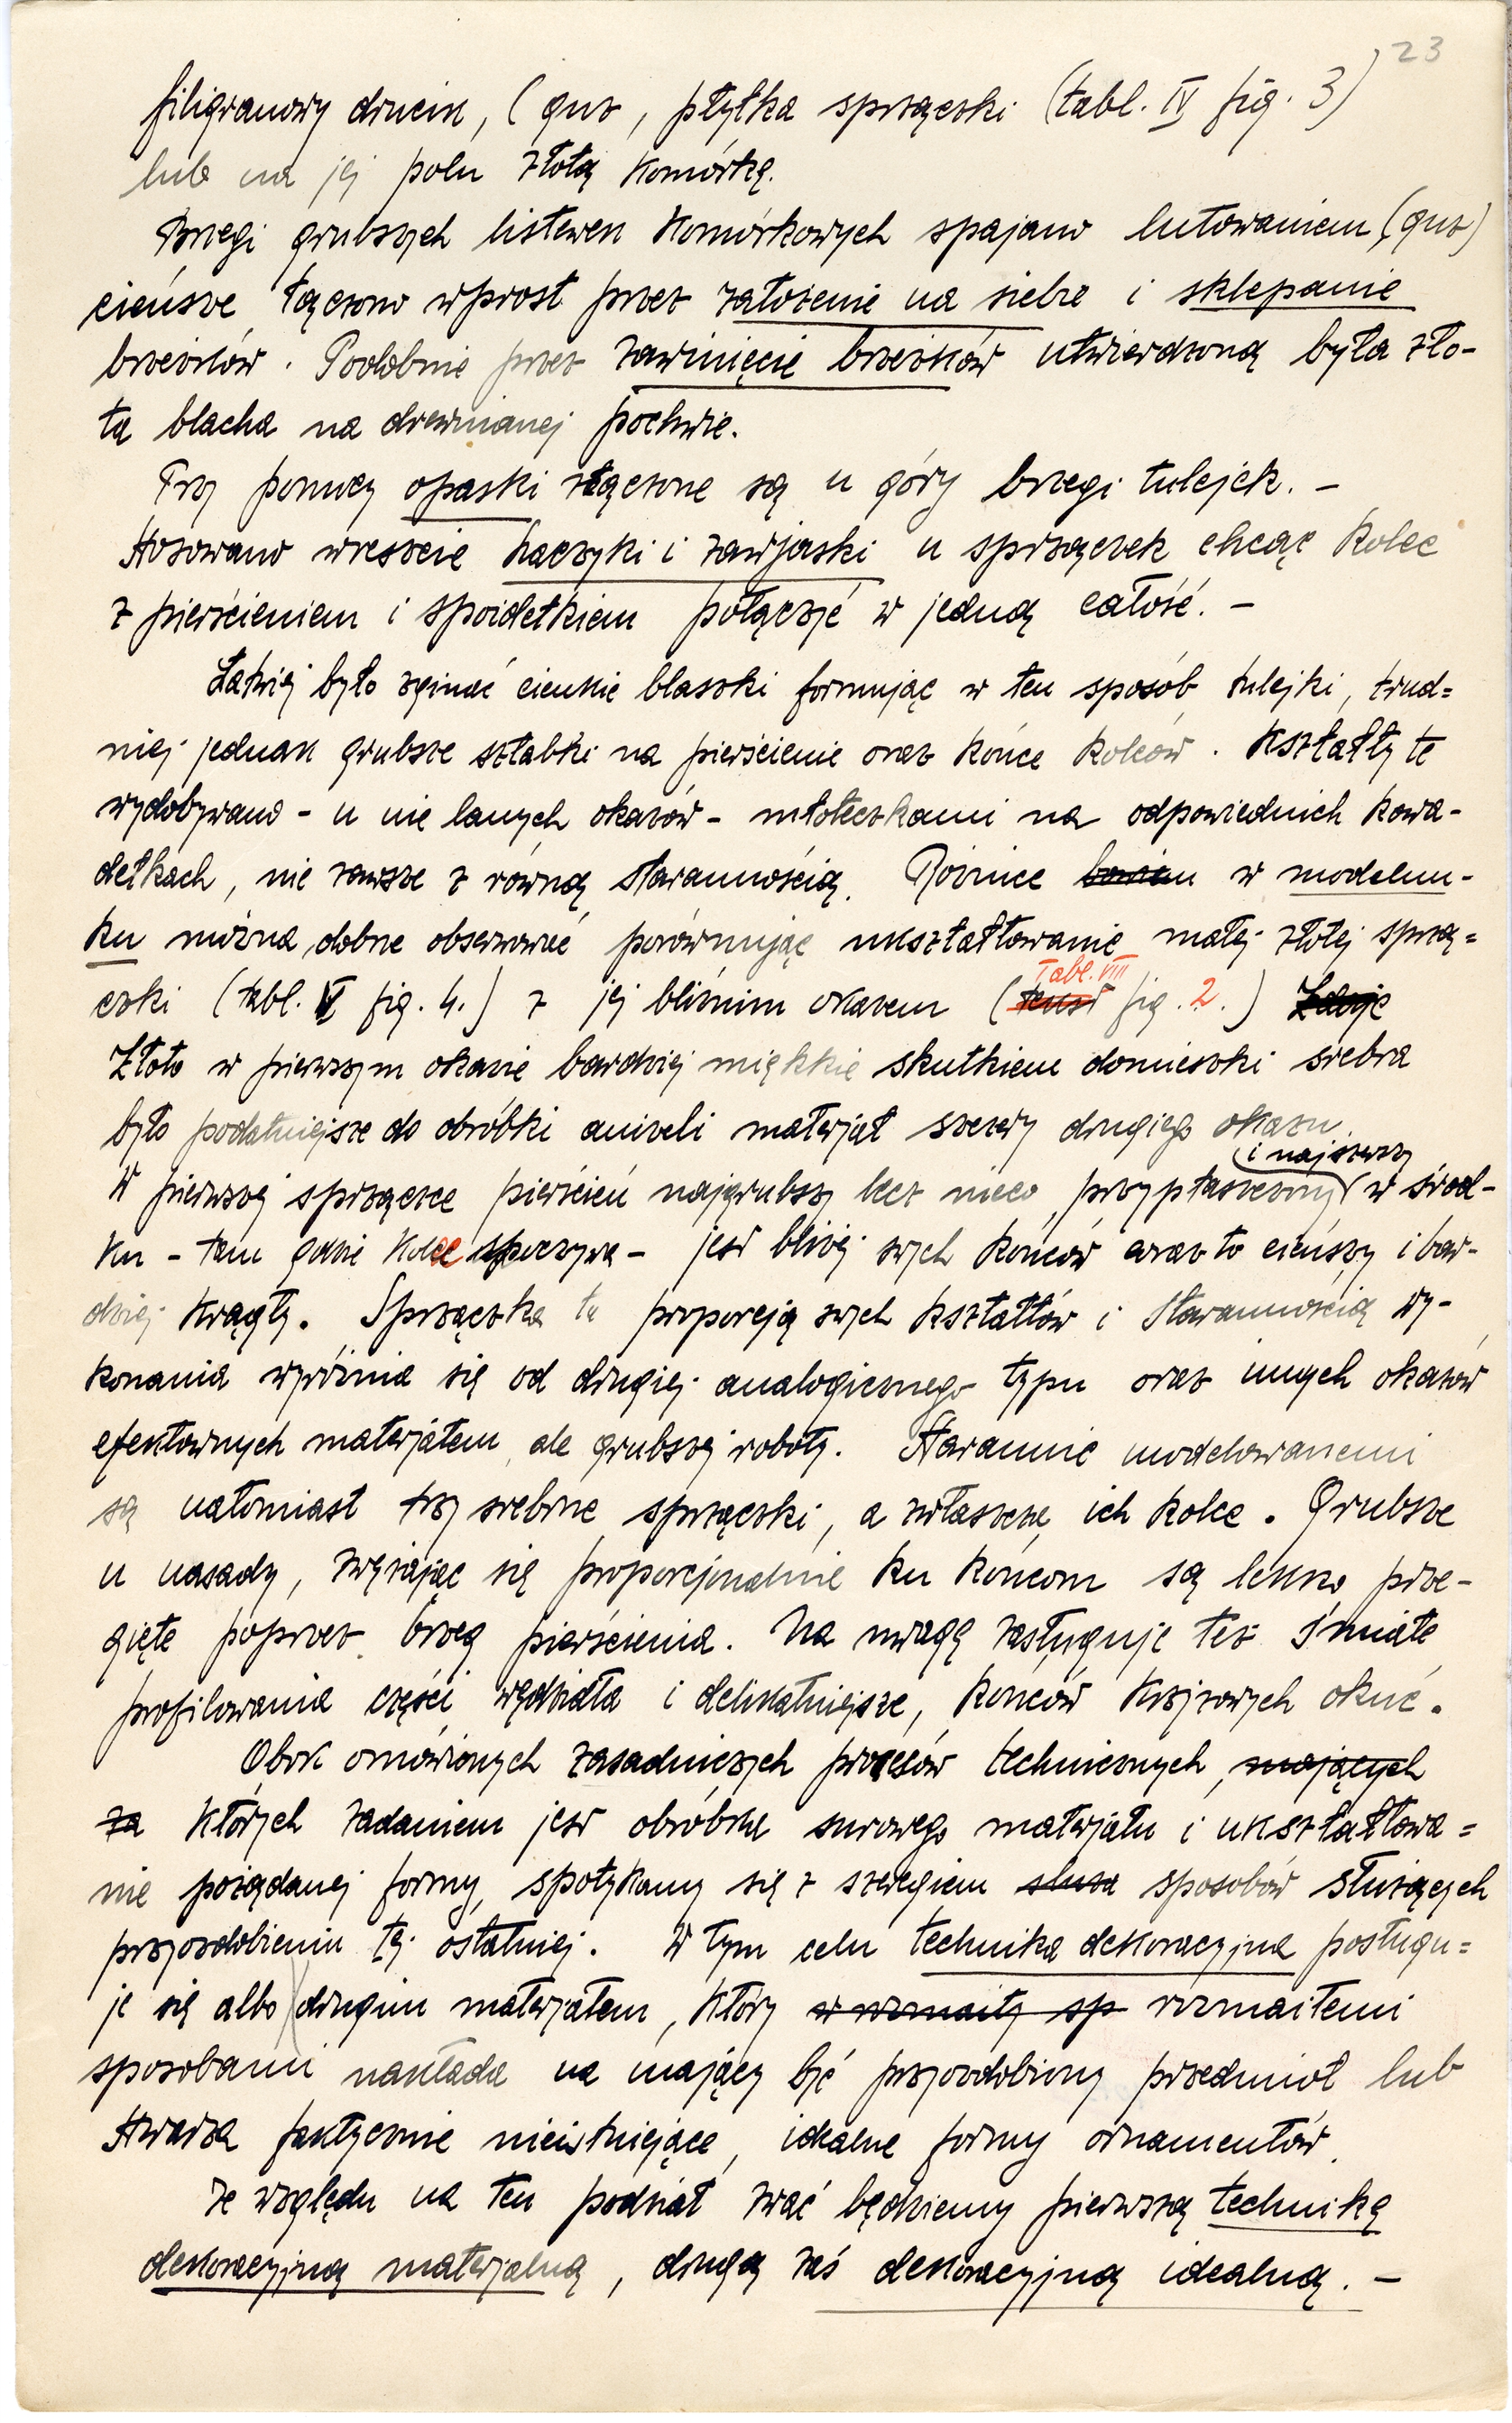 23
filigranowy drucik, (guz, płytka sprzączki (tabl. IV fig. 3)
lub na jej polu złotą komórkę.
Brzegi grubszych listewek komórkowych spajano lutowaniem (guz)
cieńsze łączono wprost przez założenie na siebie i sklepanie
brzeżków. Podobnie przez zawinięcie brzeżków utwierdzoną była zło-
ta blacha na drewnianej pochwie.
Przy pomocy opaski złączone są u góry brzegi tulejek. –
Stosowano wreszcie haczyki i zawjaski u sprzączek chcąc kolec
z pierścieniem i spoidełkiem połączyć w jedną całość. –
Łatwiej było zginać cienkie blaszki formując w ten sposób tulejki, trud=
niej jednak grubsze sztabki na pierścienie oraz końce kolców. Kształty te
wydobywano – u nie lanych okazów – młoteczkami na odpowiednich kowa-
dełkach, nie zawsze z równą starannością. Różnice bowiem w modelun-
ku można dobrze obserwować porównując ukształtowanie małej złotej sprzą=
czki (tabl. V fig. 4.) z jej bliźnim okazem (Tabl. VIII fig. 2.)
Złoto w pierwszym okazie bardziej miękkie skutkiem domieszki srebra
było podatniejsze do obróbki aniżeli materjał szczery drugiego okazu.
i najszerszy
W pierwszej sprzączce pierścień najgrubszy lecz nieco przypłaszczony w środ-
ku – tam gdzie kolec spoczywa – jest bliżej swych końców coraz to cieńszy i bar-
dziej krągły. Sprzączka ta proporcją swych kształtów i starannością wy-
konania wyróżnia się od drugiej analogicznego typu oraz innych okazów
efektownych materjałem, ale grubszej roboty. Starannie modelowanemi
są natomiast trzy srebrne sprzączki, a zwłaszcza ich kolce. Grubsze
u nasady, zwężając się proporcjonalnie ku końcom są lekko prze-
gięte poprzez brzeg pierścienia. Na uwagę zasługuje też śmiałe
profilowania części wędzidła i delikatniejsze, końców krzyżowych okuć.
Obok omówionych zasadniczych procesów technicznych, mających
za których zadaniem jest obróbka surowego materjału i ukształtowa=
nie pożądanej formy, spotykamy się z szeregiem służą sposobów służących
przyozdobieniu tej ostatniej. W tym celu technika dekoracyjna posługu=
je się albo drugim materjałem, który w rozmaity sp rozmaitemi
sposobami nakłada na mający być przyozdobiony przedmiot lub
stwarza faktycznie nieistniejące, idealne formy ornamentów.
Ze względu na ten podział zwać będziemy pierwszą techniką
dekoracyjną materjalną, drugą zaś dekoracyjną idealną. –